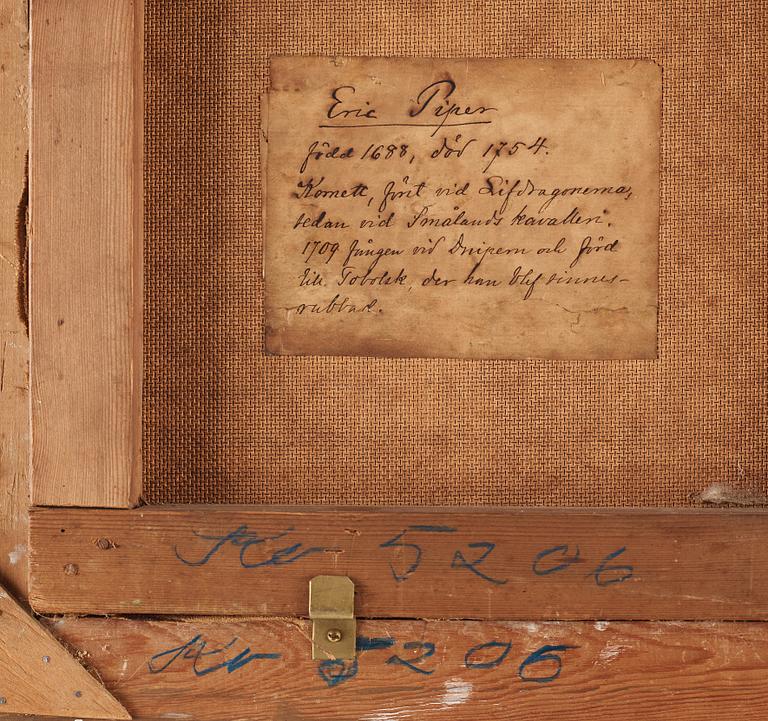 Eric Piper
född 1688, död 1754.
Kornett, först vid Lifdragonerna,
sedan vid Smålands kavalleri.
1709 fången vid Dniepern och förd
till Tobolsk, der han blef sinnes-
rubbad.
5206
5206